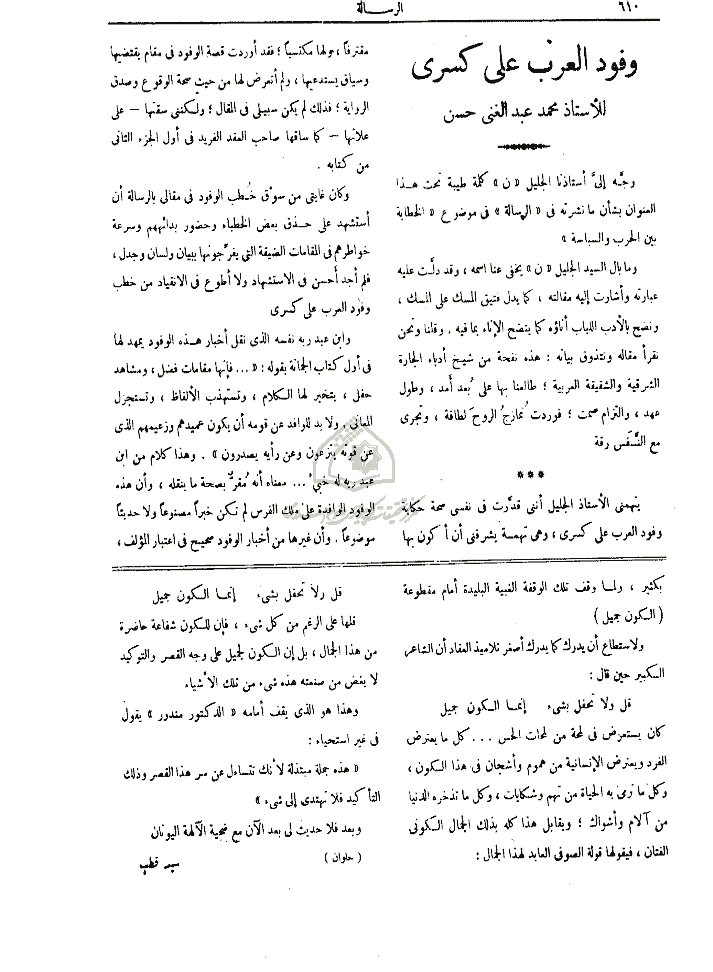 ٦١٠
الرسالة
وفود العرب على كسرى
للأستاذ محمد عبد الغنى حسن
وجَّه إلىَّ أستاذنا الجليل « ن » كلمة طيبة تحت هذا
العنوان بشأن ما نشرته فى « الرسالة » فى موضوع « الخطابة
بين الحرب والسياسة »
وما بال السيد الجليل « ن » يخفى عنا اسمه ، وقد دلَّت عليه
عبارته وأشارت إليه مقالته ، كما يدل فتيق المسك على المسك ،
ونضح بالأدب اللباب أناؤه كما ينضح الإناء بما فيه . وقلنا ونحن
نقرأ مقاله ونتذوق بيانه : هذه نفحة من شيخ أدباء الجارة
الشرقية والشقيقة العربية ؛ طالعنا بها على بُعد أمد ، وطول
عهد ، والتزام صمت ؛ فوردت تُمازج الروح لطافة ، وتجرى
مع النَّفَس رقة
***
يتهمنى الأستاذ الجليل أننى قدَّرت فى نفسى صحة حكاية
وفود العرب على كسرى ، وهى تهمة يشرفنى أن أكون بها
مقترفاً ، حولها مكتسباً ؛ فقد أوردت قصة الوفود فى مقام يقتضيها
وسياق يستدعيها ، ولم أتعرض لها من حيث صحة الوقوع وصدق
الرواية ؛ فذلك لم يكن سبيلى فى المقال ؛ ولكننى سقتها — على
علاتها — كما ساقها صاحب العقد الفريد فى أول الجزء الثانى
من كتابه .
وكان غايتى من سوْق خُطب الوفود فى مقالى بالرسالة أن
أستشهد على حذق بعض الخطباء وحضور بدائههم وسرعة
خواطرهم فى المقامات الضيقة التى يفرِّجونها ببيان ولسان وجدل ،
فلم أجد أحسن فى الاستشهاد ولا أطوع فى الانقياد من خطب
وفود العرب على كسرى
وابن عبد ربه نفسه الذى نقل أخبار هذه الوفود يمهد لها
فى أول كتاب الجمانة بقوله : « ... فإنها مقامات فضل ، ومشاهد
حفل ، يتخير لها الكلام ، وتستهذب الألفاظ ، وتستجزل
المعانى . ولا بد للوافد عن قومه أن يكون عميدهم وزعيمهم الذى
عن قوته ينزعون وعن رأيه يصدرون » . وهذا كلام من ابن
عبد ربه له خبىء ... معناه أنه مُقرٌّ بصحة ما ينقله ، وأن هذه
الوفود الوافدة على ملك الفرس لم تكن خبراً مصنوعاً ولا حديثاً
موضوعاً . وأن غيرها من أخبار الوفود صحيح فى اعتبار المؤلف ،
بكثير ، ولما وقف تلك الوقفة الغبية البليدة أمام مقطوعة
( الكون جميل )
ولاستطاع أن يدرك كما يدرك أصغر تلاميذ العقاد أن الشاعر
الكبير حين قال :
قل ولا تحفل بشىء إنما الكون جميل
كان يستعرض فى لمحة من لمحات الحس ... كل ما يعترض
الفرد ويعترض الإنسانية من هموم وأشجان فى هذا الكون ،
وكل ما ترمى به الحياة من تهم وشكايات ، وكل ما تذخره الدنيا
من آلام وأشواك ؛ ويقابل هذا كله بذلك الجمال الكونى
الفتان ، فيقولها قولة الصوفى العابد لهذا الجمال :
قل ولا تحفل بشىء إنما الكون جميل
قلها على الرغم من كل شىء ، فإن للكون شفاعة حاضرة
من هذا الجمال ، بل إن الكون لجميل على وجه القصر والتوكيد
لا يغض من صفته هذه شىء من تلك الأشياء
وهذا هو الذى يقف أمامه « الدكتور مندور » يقول
فى غير استحياء :
« هذه جملة مبتذلة لأنك تتساءل عن سر هذا القصر وذلك
التأكيد فلا تهتدى إلى شىء »
وبعد فلا حديث لى بعد الآن مع ضحية الآلهة اليونان
( حلوان )
سيد قطب